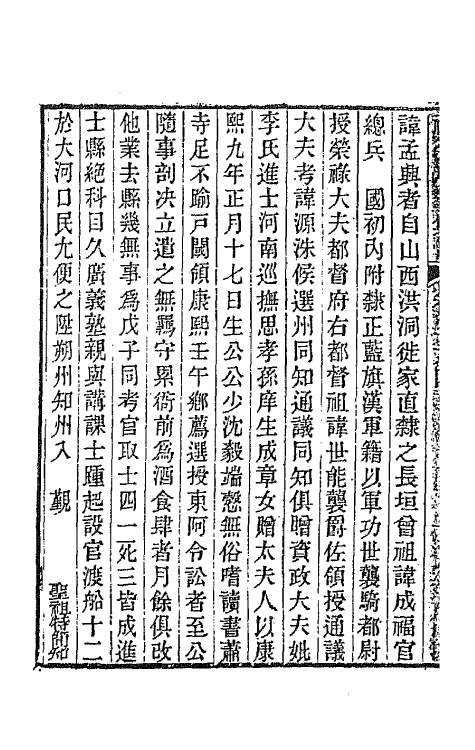 諱孟興者自山西洪洞徙家直隸之長垣曾祖諱成福官
總兵　國初內附隸正藍旗漢軍籍以軍功世襲騎都尉
授榮祿大夫都督府右都督祖諱世能襲爵佐領授通議
大夫考諱源洙侯選州同知通議同知俱贈資政大夫妣
李氏進士河南巡撫思孝孫庠生成章女贈太夫人以康
熙九年正月十七日生公公少沈毅端慤無俗嗜讀書蕭
寺足不踰戶閾領康熙壬午鄉薦選授東阿令訟者至公
隨事剖决立遣之無羈守累衙前爲酒食肆者月餘俱改
他業去縣幾無事爲戊子同考官取士四一死三皆成進
士縣絕科目久廣義塾親與講課士踵起設官渡船十二
於大河口民尢便之陞朔州知州入　覲　聖祖特